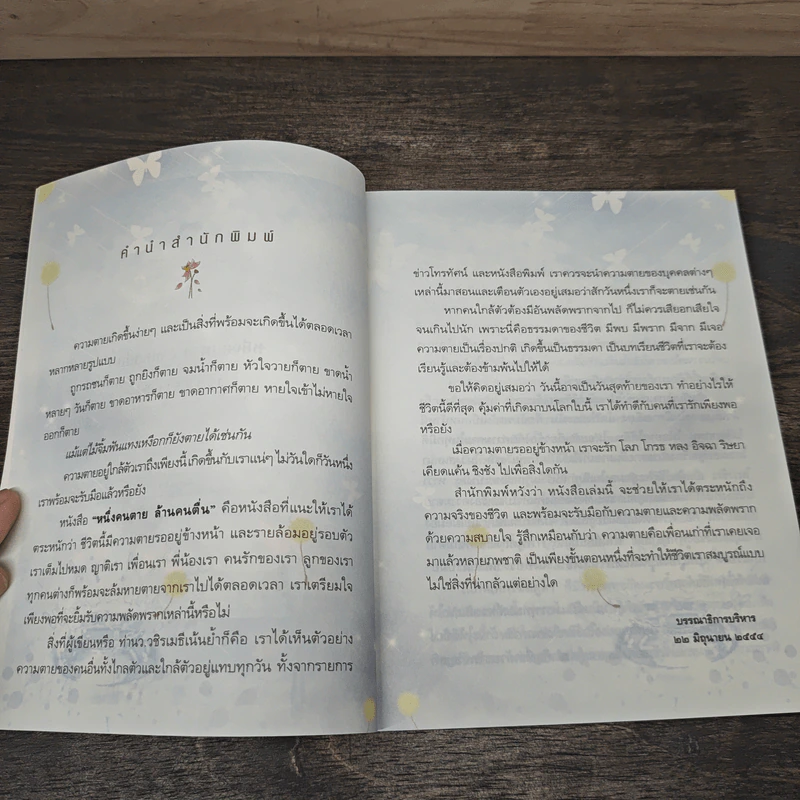 คำนำสำนักพิมพ์
ความตายเกิดขึ้นง่ายๆ และเป็นสิ่งที่พร้อมจะเกิดขึ้นได้ตลอดเวลา
หลากหลายรูปแบบ
ถูกรถชนก็ตาย ถูกยิงก็ตาย จมน้ำก็ตาย หัวใจวายก็ตาย ขาดน้ำ
หลายๆ วันก็ตาย ขาดอาหารก็ตาย ขาดอากาศก็ตาย หายใจเข้าไม่หายใจ
ออกก็ตาย
แม้แต่ไม้จิ้มฟันแทงเหงือกก็ยังตายได้เช่นกัน
ความตายอยู่ใกล้ตัวเราถึงเพียงนี้ เกิดขึ้นกับเราแน่ๆ ไม่วันใดก็วันหนึ่ง
เราพร้อมจะรับมือแล้วหรือยัง
หนังสือ “หนึ่งคนตาย ล้านคนตื่น” คือหนังสือที่แนะให้เราได้
ตระหนักว่า ชีวิตนี้มีความตายรออยู่ข้างหน้า และรายล้อมอยู่รอบตัว
เราเต็มไปหมด ญาติเรา เพื่อนเรา พี่น้องเรา คนรักของเรา ลูกของเรา
ทุกคนต่างก็พร้อมจะล้มหายตายจากเราไปได้ตลอดเวลา เราเตรียมใจ
เพียงพอที่จะยิ้มรับความพลัดพรากเหล่านี้หรือไม่
สิ่งที่ผู้เขียนหรือ ท่านว.วชิรเมธีเน้นย้ำก็คือ เราได้เห็นตัวอย่าง
ความตายของคนอื่นทั้งไกลตัวและใกล้ตัวอยู่แทบทุกวัน ทั้งจากรายการ
ข่าวโทรทัศน์ และหนังสือพิมพ์ เราควรจะนำความตายของบุคคลต่างๆ
เหล่านี้มาสอนและเตือนตัวเองอยู่เสมอว่าสักวันหนึ่งเราก็จะตายเช่นกัน
หากคนใกล้ตัวต้องมีอันพลัดพรากจากไป ก็ไม่ควรเสียอกเสียใจ
จนเกินไปนัก เพราะนี่คือธรรมดาของชีวิต มีพบ มีพราก มีจาก มีเจอ
ความตายเป็นเรื่องปกติ เกิดขึ้นเป็นธรรมดา เป็นบทเรียนชีวิตที่เราจะต้อง
เรียนรู้และต้องข้ามพ้นไปให้ได้
ขอให้คิดอยู่เสมอว่า วันนี้อาจเป็นวันสุดท้ายของเรา ทำอย่างไรให้
ชีวิตนี้ดีที่สุด คุ้มค่าที่เกิดมาบนโลกใบนี้ เราได้ทำดีกับคนที่เรารักเพียงพอ
หรือยัง
เมื่อความตายรออยู่ข้างหน้า เราจะรัก โลภ โกรธ หลง อิจฉา ริษยา
เคียดแค้น ชิงชัง ไปเพื่อสิ่งใดกัน
สำนักพิมพ์หวังว่า หนังสือเล่มนี้ จะช่วยให้เราได้ตระหนักถึง
ความจริงของชีวิต และพร้อมจะรับมือกับความตายและความพลัดพราก
ด้วยความสบายใจ รู้สึกเหมือนกับว่า ความตายคือเพื่อนเก่าที่เราเคยเจอ
มาแล้วหลายภพชาติ เป็นเพียงขั้นตอนหนึ่งที่จะทำให้ชีวิตเราสมบูรณ์แบบ
ไม่ใช่สิ่งที่น่ากลัวแต่อย่างใด
บรรณาธิการบริหาร
๒๒ มิถุนายน ๒๕๕๔